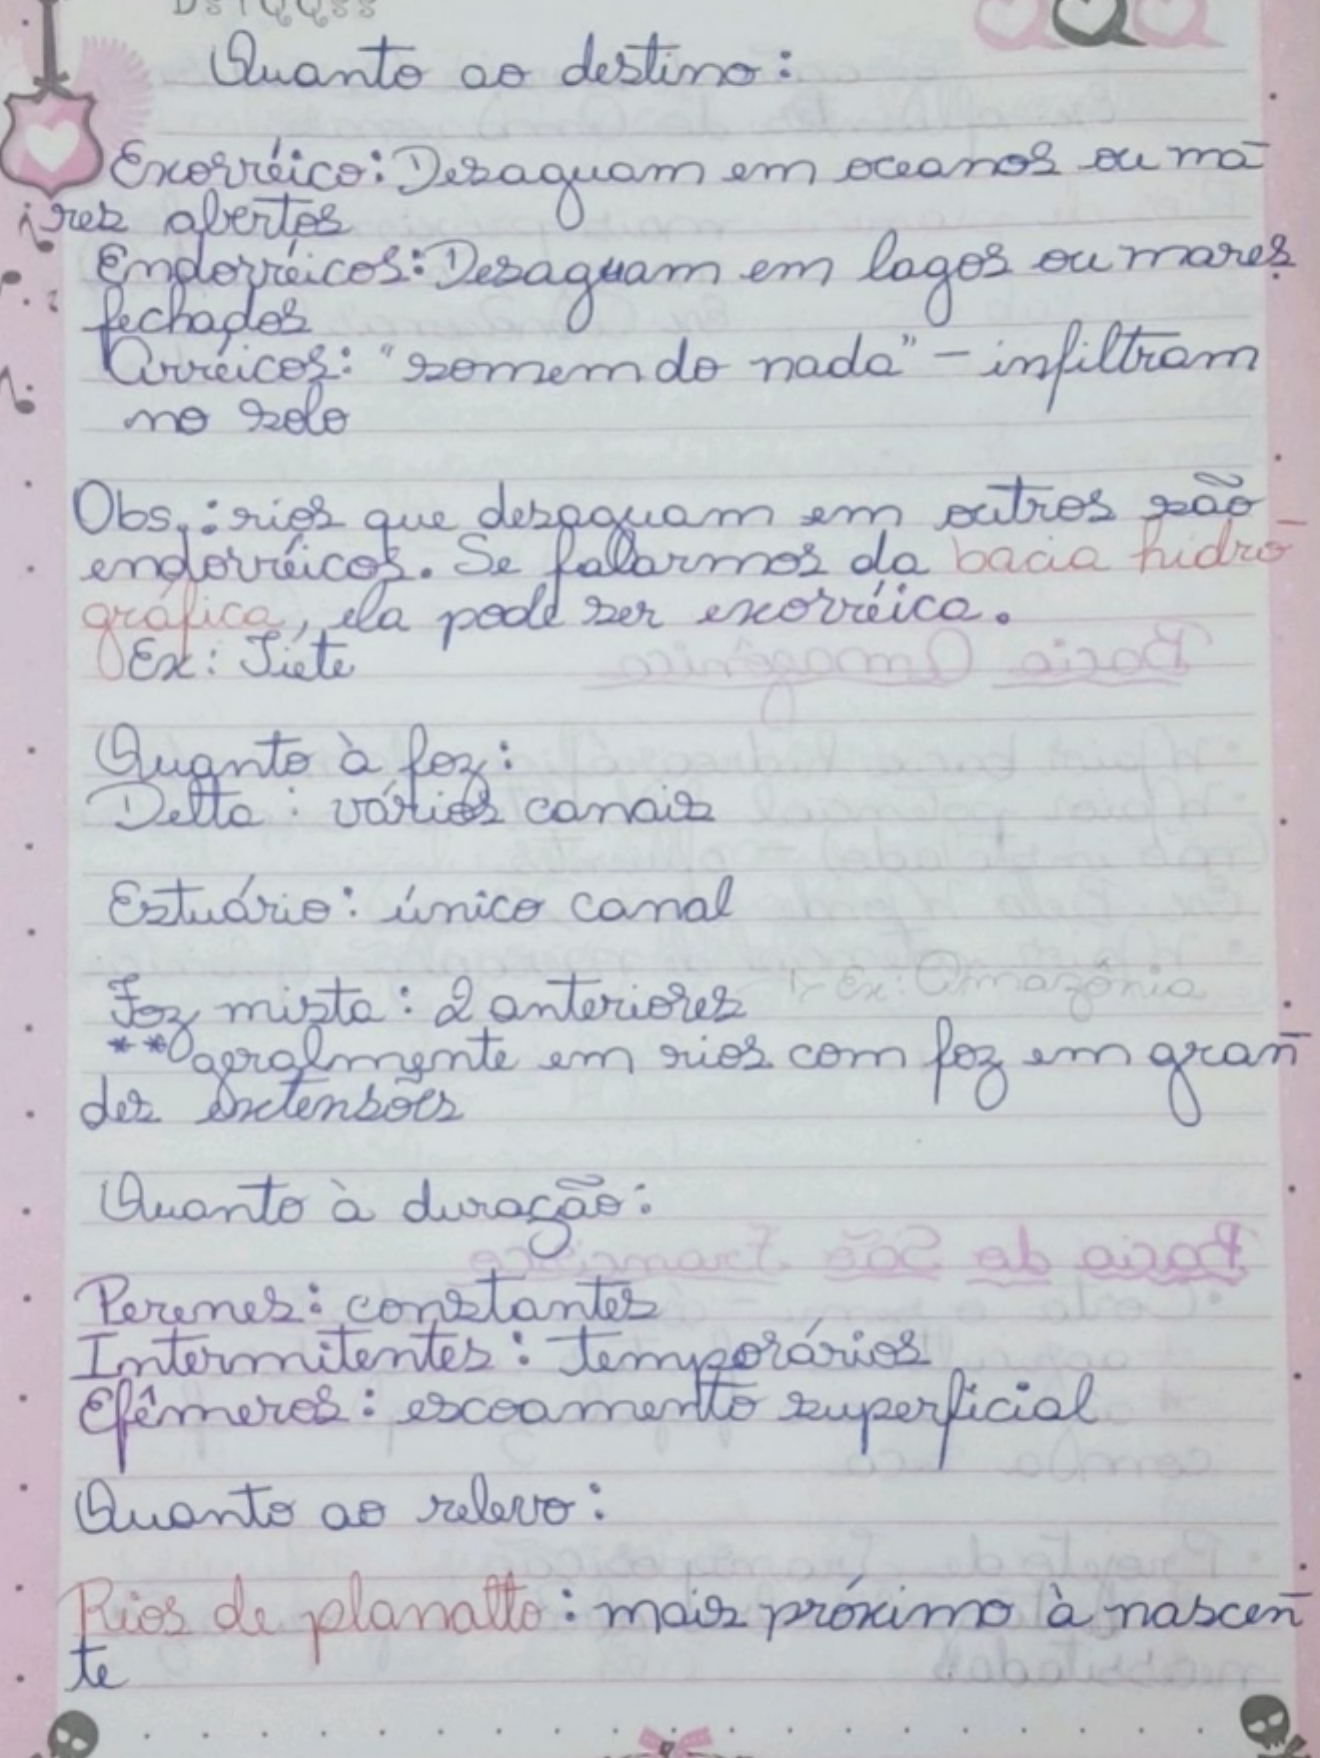 Quanto ao destino:
Exorréico: Desaguam em oceanos ou ma-
res abertos
Endorréicos: Desaguam em lagos ou mares
fechados
Arréicos: "somem do nada" - infiltram
no solo
Obs.: rios que desaguam em outros são
endorréicos. Se falarmos da bacia hidro-
gráfica, ela pode ser exorréica.
Ex: Tiete
Quanto à foz:
Delta: vários canais
Estuário: único canal
Foz mista: 2 anteriores → Ex: Amazônia
**geralmente em rios com foz em gran-
des extensões
Quanto à duração:
Perenes: constantes
Intermitentes: temporários
Efêmeros: escoamento superficial
Quanto ao relevo:
Rios de planalto: mais próximo à nascen-
te